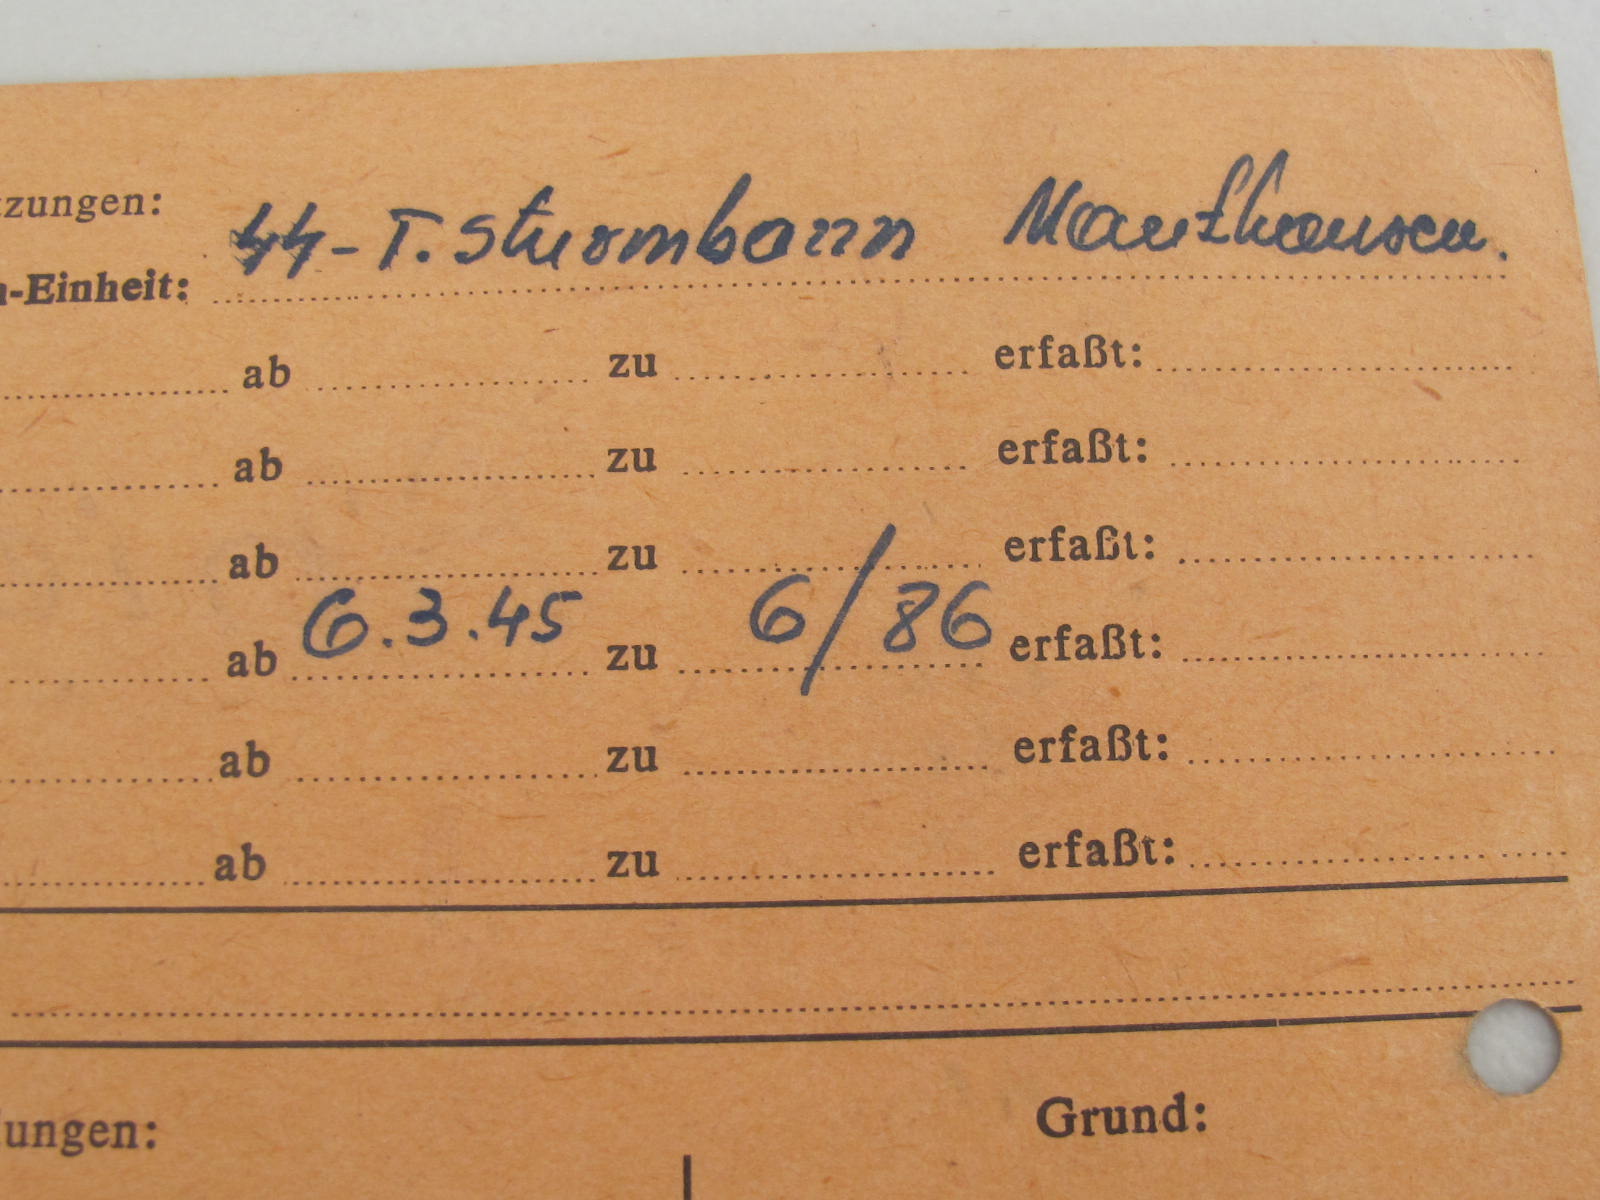 tzungen:
n-Einheit: SS-T. Sturmbann Mauthausen.
ab zu erfaßt:
ab zu erfaßt:
ab zu erfaßt:
ab 6.3.45 zu 6/86 erfaßt:
ab zu erfaßt:
ab zu erfaßt:
lungen: Grund: